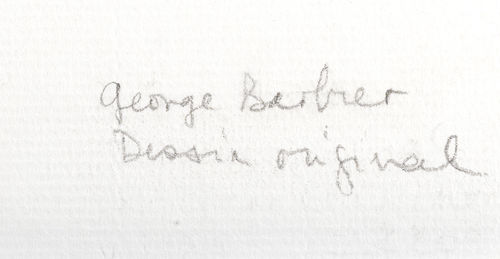 George Barbier
Dessin original